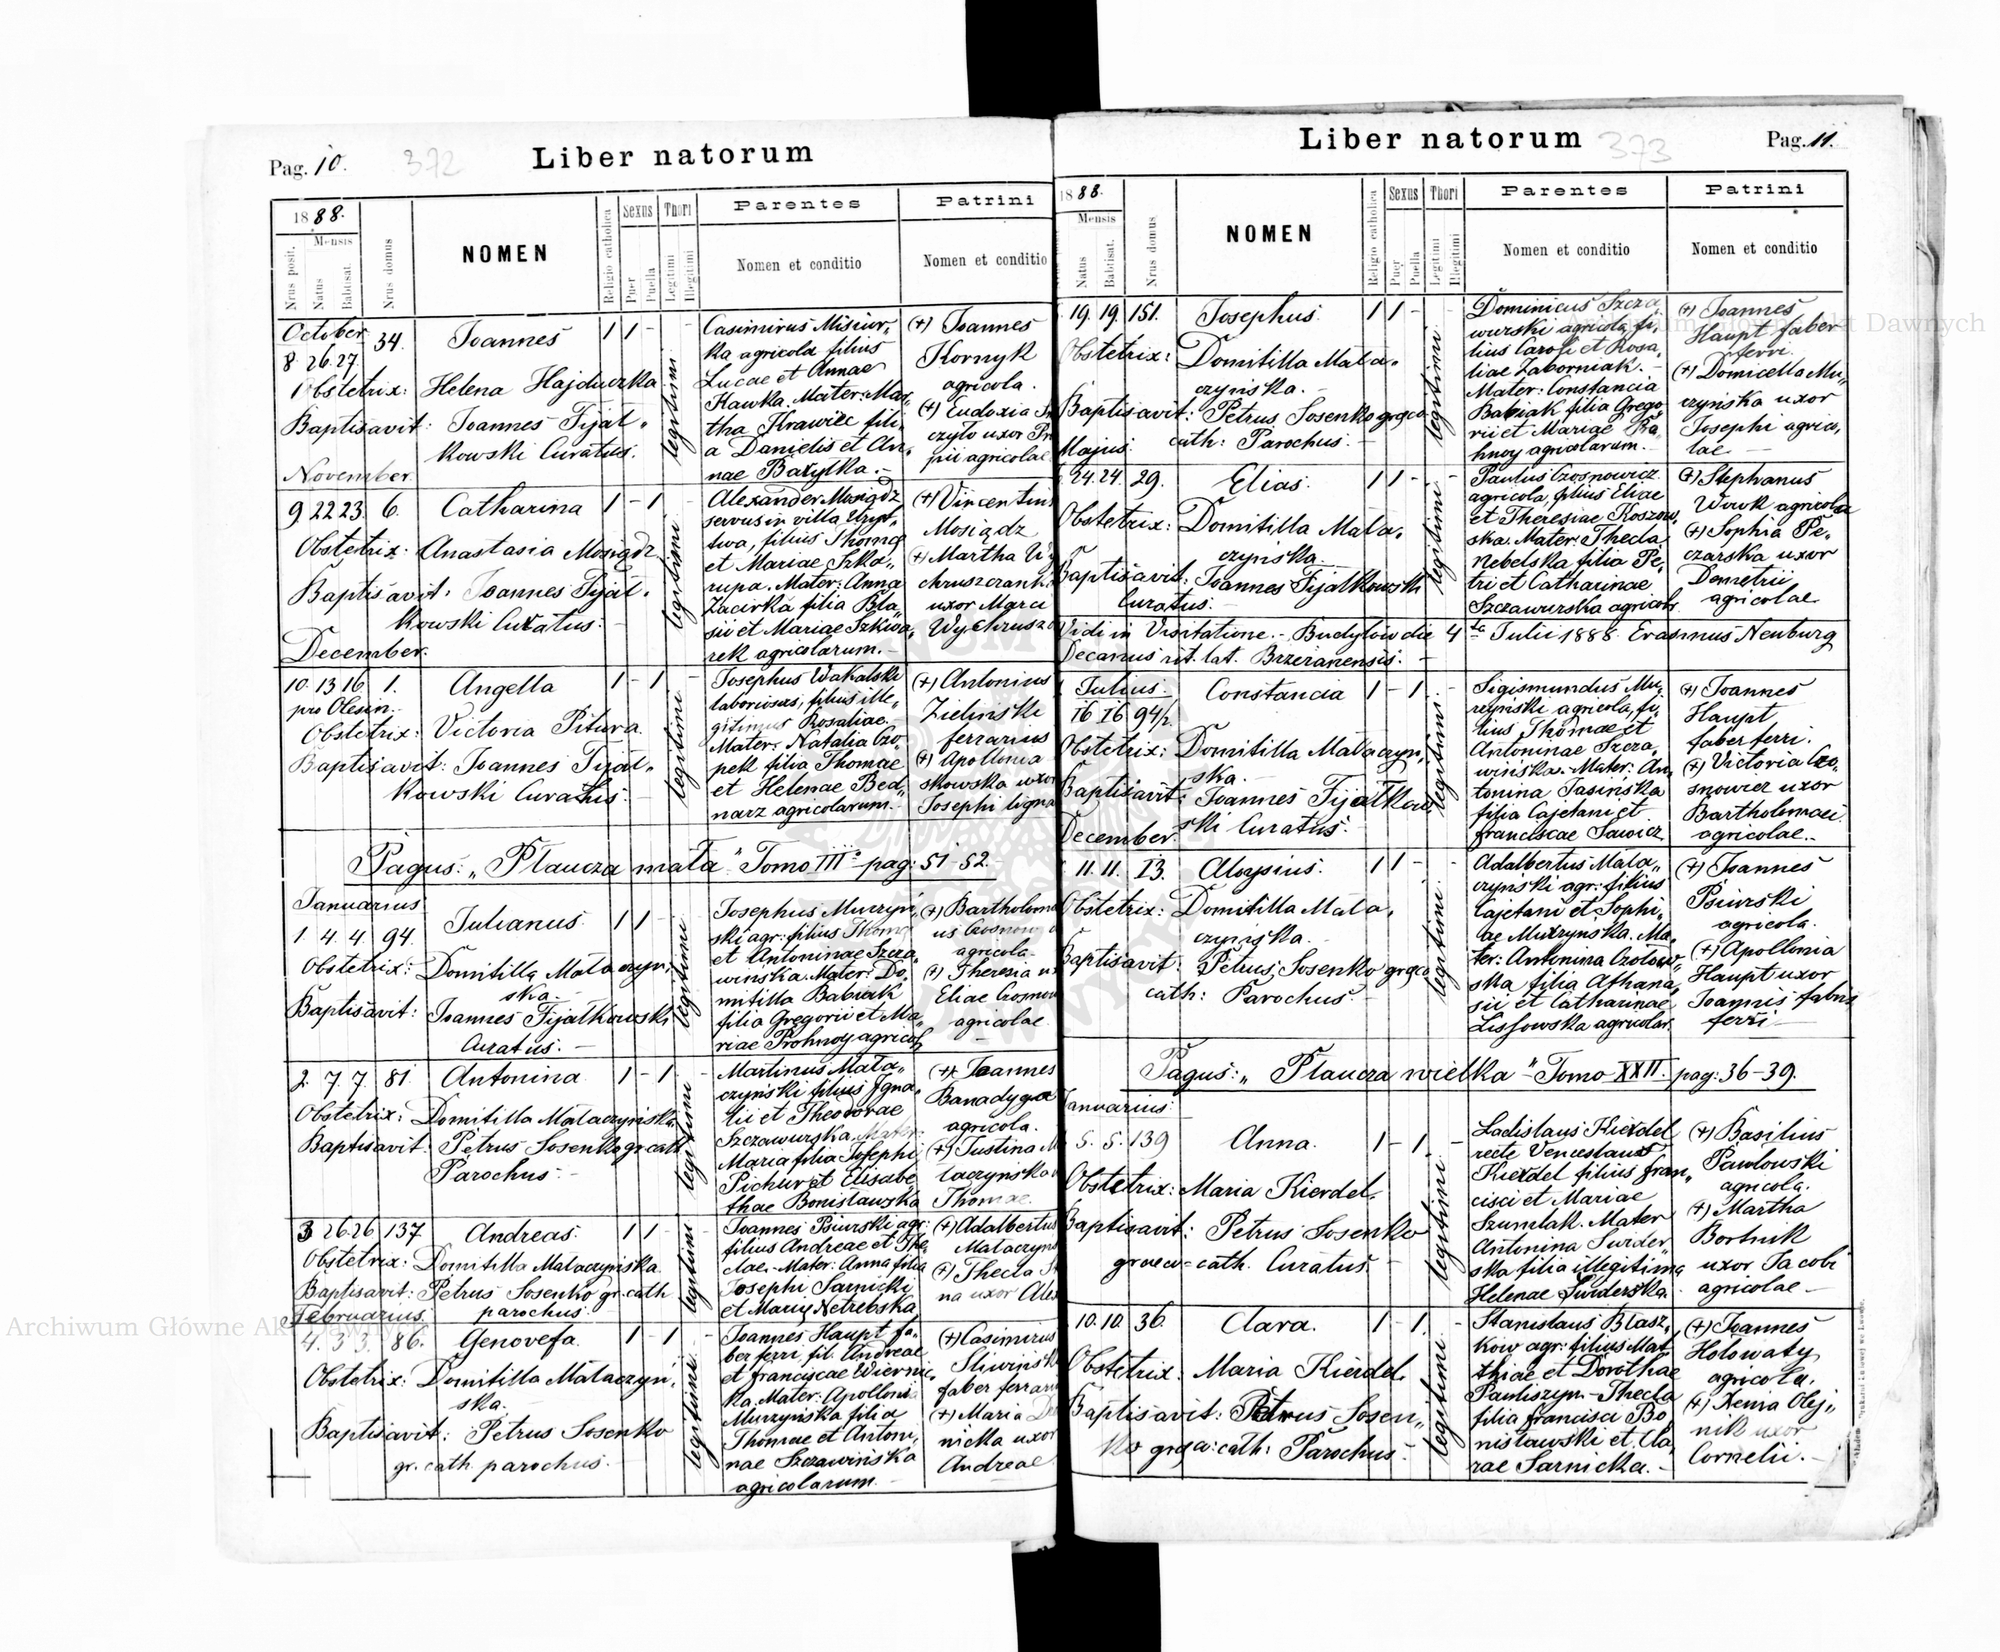 Pag. 10.
372
Liber natorum
1888.
Mensis
Nrus posit.
Natus
Babtisat.
Nrus domus
NOMEN
Religio catholica
Sexus
Puer
Puella
Thori
Legitimi
Illegitimi
Parentes
Nomen et conditio
Patrini
Nomen et conditio
October
8. 26. 27. 34. Joannes 1 1 -
1 Obstetrix: Helena Hajduczka
Baptisavit: Joannes Fijał-
kowski Curatus.
legitimi
Casimirus Misiur-
ka agricola filius
Lucae et Annae
Hawka. Mater: Mar-
tha Krawiec fili-
a Danielis et An-
nae Bazytka.
(+) Joannes
Kornyk
agricola.
(+) Eudoxia
czyło uxor
pii agricolae
November
9 22 23 6. Catharina 1 - 1
Obstetrix: Anastasia Mosiądz
Baptisavit: Joannes Fijał-
kowski Curatus.
legitimi
Alexander Mosiądz
servus in villa
filius Thomae
et Mariae Szka-
rupa. Mater: Anna
Zacirka filia Bla-
sii et Mariae Szkwa-
rek agricolarum.
(+) Vincentius
Mosiądz
(+) Martha
uxor Marci
December.
10. 13 16. 1. Angella 1 - 1
pro Olesin.
Obstetrix: Victoria Pitura
Baptisavit: Joannes Fijał-
kowski Curatus.
legitimi
Josephus Wakalski
laboriosus, filius ille-
gitimus Rosaliae.
Mater: Natalia Czo-
pek filia Thomae
et Helenae Bed-
narz agricolarum.
(+) Antonius
Zieliński
ferrarius
(+) Apollonia
skowska uxor
Josephi ligna
Pagus: „Płaucza mała" Tomo III pag: 51-52.
Januarius
1. 4. 4. 94. Julianus 1 1 -
Obstetrix: Domitilla Małaczyń-
ska.
Baptisavit: Joannes Fijałkowski
Curatus.
legitimi
Josephus Murzyń-
ski agr: filius Thomae
et Antoninae Szcza-
wińska. Mater: Do-
mitilla Babiak
filia Gregorii et Ma-
riae Prohnoy agricol.
(+) Bartholomae
us
agricola.
(+) Theresia
Eliae
agricolae
2. 7. 7. 81. Antonina 1 - 1
Obstetrix: Domitilla Małaczyńska
Baptisavit: Petrus Sosenko gr. cath.
Parochus.
legitimi
Martinus Mała-
czyński filius Igna-
tii et Theodorae
Szczawurska. Mater:
Maria filia Josephi
Pichur et Elisabe-
thae Bonisławska
(+) Joannes
Banadyga
agricola.
(+) Justina M
łaczyńska
Thomae.
3 26 26 137 Andreas. 1 1 -
Obstetrix: Domitilla Małaczyńska.
Baptisavit: Petrus Sosenko gr. cath.
parochus.
legitimi
Joannes Psiurski agr:
filius Andreae et The-
clae. Mater: Anna filia
Josephi Sarnicki
et Marię Netrebska
(+) Adalbertus
Małaczyns
(+) Thecla
na uxor Alex
Februarius
4. 3 3. 86. Genovefa. 1 - 1 -
Obstetrix: Domitilla Małaczyń-
ska.
Baptisavit: Petrus Sosenko
gr. cath. parochus.
legitimi
Joannes Haupt fa-
ber ferri fil. Andreae
et Franciscae Wiernic-
ka. Mater: Apollonia
Murzyńska filia
Thomae et Antoni-
nae Szczawińska
agricolarum.
(+) Casimirus
Śliwiński
faber ferrari
(+) Maria
nicka uxor
Andreae
Liber natorum
373
Pag. 11.
1888.
Mensis
Natus
Babtisat.
Nrus domus
NOMEN
Religio catholica
Sexus
Puer
Puella
Thori
Legitimi
Illegitimi
Parentes
Nomen et conditio
Patrini
Nomen et conditio
19. 19. 151. Josephus. 1 1 - -
Obstetrix: Domitilla Mała-
czyńska.
Baptisavit: Petrus Sosenko gręco
cath: Parochus.
legitimi
Dominicus Szcza-
wurski agricola, fi-
lius Caroli et Rosa-
liae Zaborniak.
Mater: Constancia
Babiak filia Grego-
rii et Mariae Pra-
hnoy agricolarum.
(+) Joannes
Haupt faber
ferri.
(+) Domicella Mu-
rzyńska uxor
Josephi agrico-
lae
Majus.
24. 24. 29. Elias. 1 1 - -
Obstetrix: Domitilla Mała-
czyńska
Baptisavit: Joannes Fijałkowski
Curatus.
legitimi
Paulus Czosnowicz
agricola, filius Eliae
et Theresiae Koszow-
ska. Mater: Thecla
Nebelska filia Pe-
tri et Catharinae
Szczawurska agricol.
(+) Stephanus
Wowk agricola
(+) Sophia Pe-
czarska uxor
Demetrii
agricolae
Vidi in Visitatione. Budyłów die 4 ta Julii 1888. Erasmus Neuburg
Decanus rit. lat. Brzeżanensis.
Julius.
16 16 94/2 Constancia 1 - 1 -
Obstetrix: Domitilla Małaczyń-
ska.
Baptisavit: Joannes Fijałkow-
ski Curatus.
legitimi
Sigismundus Mu-
rzyński agricola, fi-
lius Thomae et
Antoninae Szcza-
wińska. Mater: An-
tonina Jasińska
filia Cajetani et
Franciscae Sawicz
(+) Joannes
Haupt
faber ferri.
(+) Victoria Czo-
snowicz uxor
Bartholomaei
agricolae.
December.
11. 11. 13. Aloysius. 1 1 - -
Obstetrix: Domitilla Mała-
czyńska.
Baptisavit: Petrus Sosenko gręco
cath: Parochus.
legitimi
Adalbertus Mała-
czyński agr: filius
Cajetani et Sophi-
ae Murzyńska. Ma-
ter: Antonina Czołow-
ska filia Athana-
sii et Catharinae
Lissowska agricolar.
(+) Joannes
Psiurski
agricola.
(+) Apollonia
Haupt uxor
Joannis fabri
ferri
Pagus: „Płaucza wielka" Tomo XXII. pag: 36-39.
Januarius
5. 5. 139 Anna. 1 - 1. -
Obstetrix: Maria Kierdel.
Baptisavit: Petrus Sosenko
graeco-cath. Curatus.
legitimi
Ladislaus Kierdel
recte Venceslaus
Kierdel filius Fran-
cisci et Mariae
Szumlak. Mater
Antonina Swider-
ska filia illegitima
Helenae Świderska.
(+) Basilius
Pawłowski
agricola.
(+) Martha
Bortnik
uxor Jacobi
agricolae
10. 10. 36. Clara. 1 - 1. -
Obstetrix: Maria Kierdel.
Baptisavit: Petrus Sosen-
ko gręco: cath: Parochus.
legitimi
Stanislaus Błasz-
kow agr: filius Mat-
thiae et Dorothae
Pauliszyn. Thecla
filia Francisci Bo-
nisławski et Cla-
rae Sarnicka.
(+) Joannes
Hołowaty
agricola.
(+) Xenia Olej-
nik uxor
Cornelii.
Archiwum Główne Akt Dawnych
Archiwum Główne Akt Dawnych